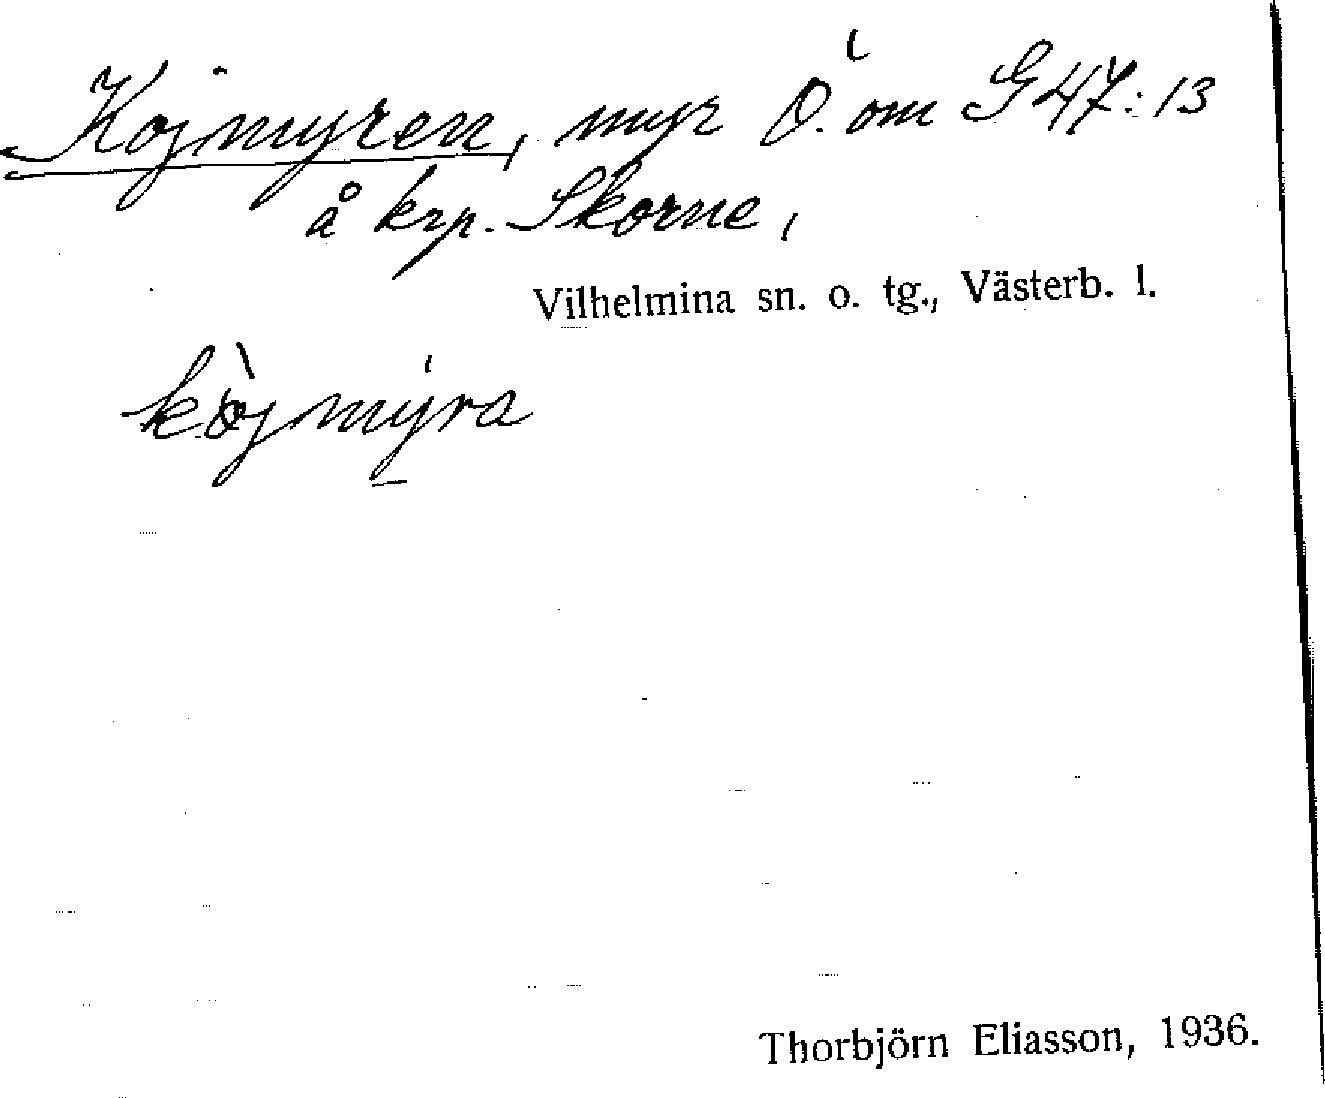 Kojmyren, myr Ö. om G47:13
å krp. Skorne,
Vilhelmina sn. o. tg., Västerb. l.
kòjmýra
Thorbjörn Eliasson, 1936.